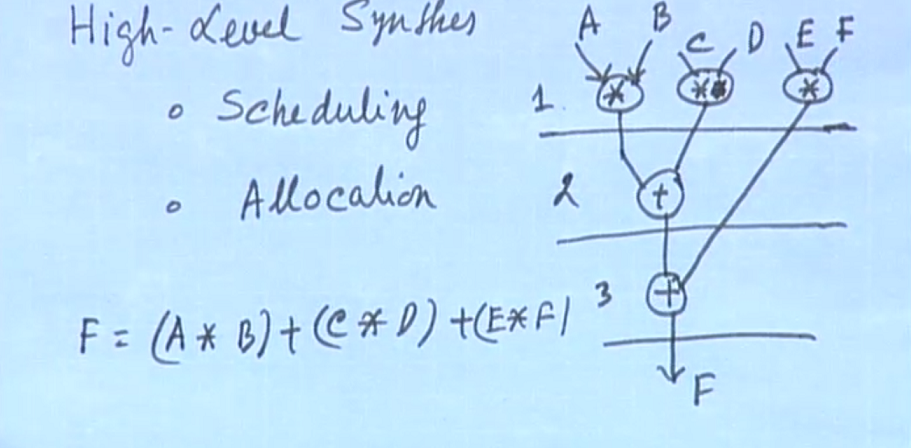 High-Level Synthes
• Scheduling
• Allocation
F = (A * B) + (C * D) + (E * F)
A B C D E F
1. * ** *
2 +
3 +
F